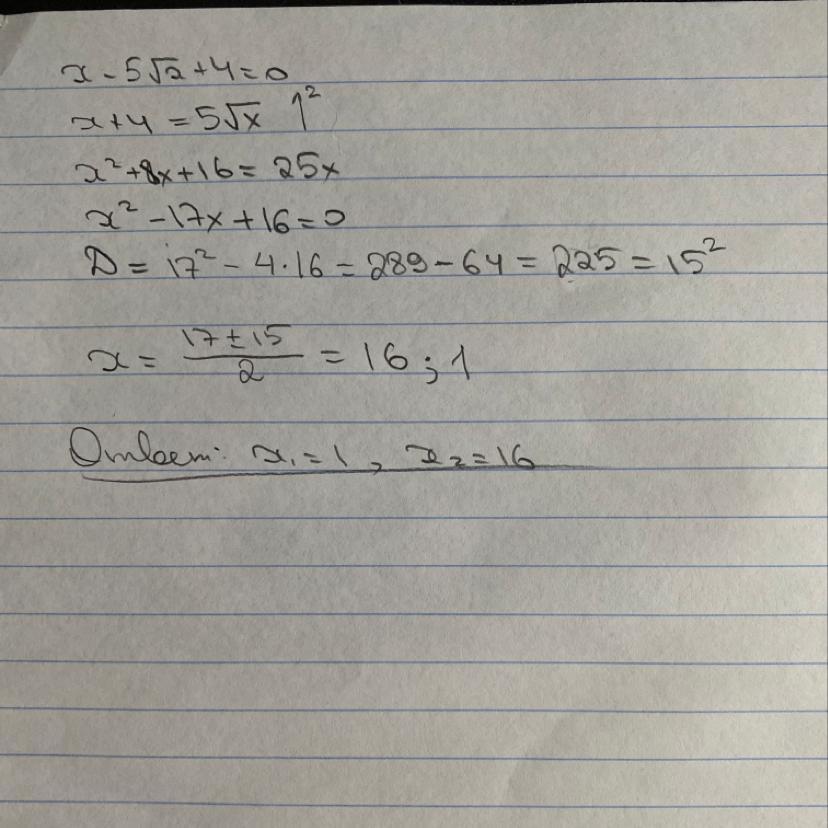 x - 5√x + 4 = 0
x + 4 = 5√x ↑²
x² + 8x + 16 = 25x
x² - 17x + 16 = 0
D = 17² - 4·16 = 289 - 64 = 225 = 15²
x = (17 ± 15)/2 = 16 ; 1
Ответ: x₁ = 1, x₂ = 16